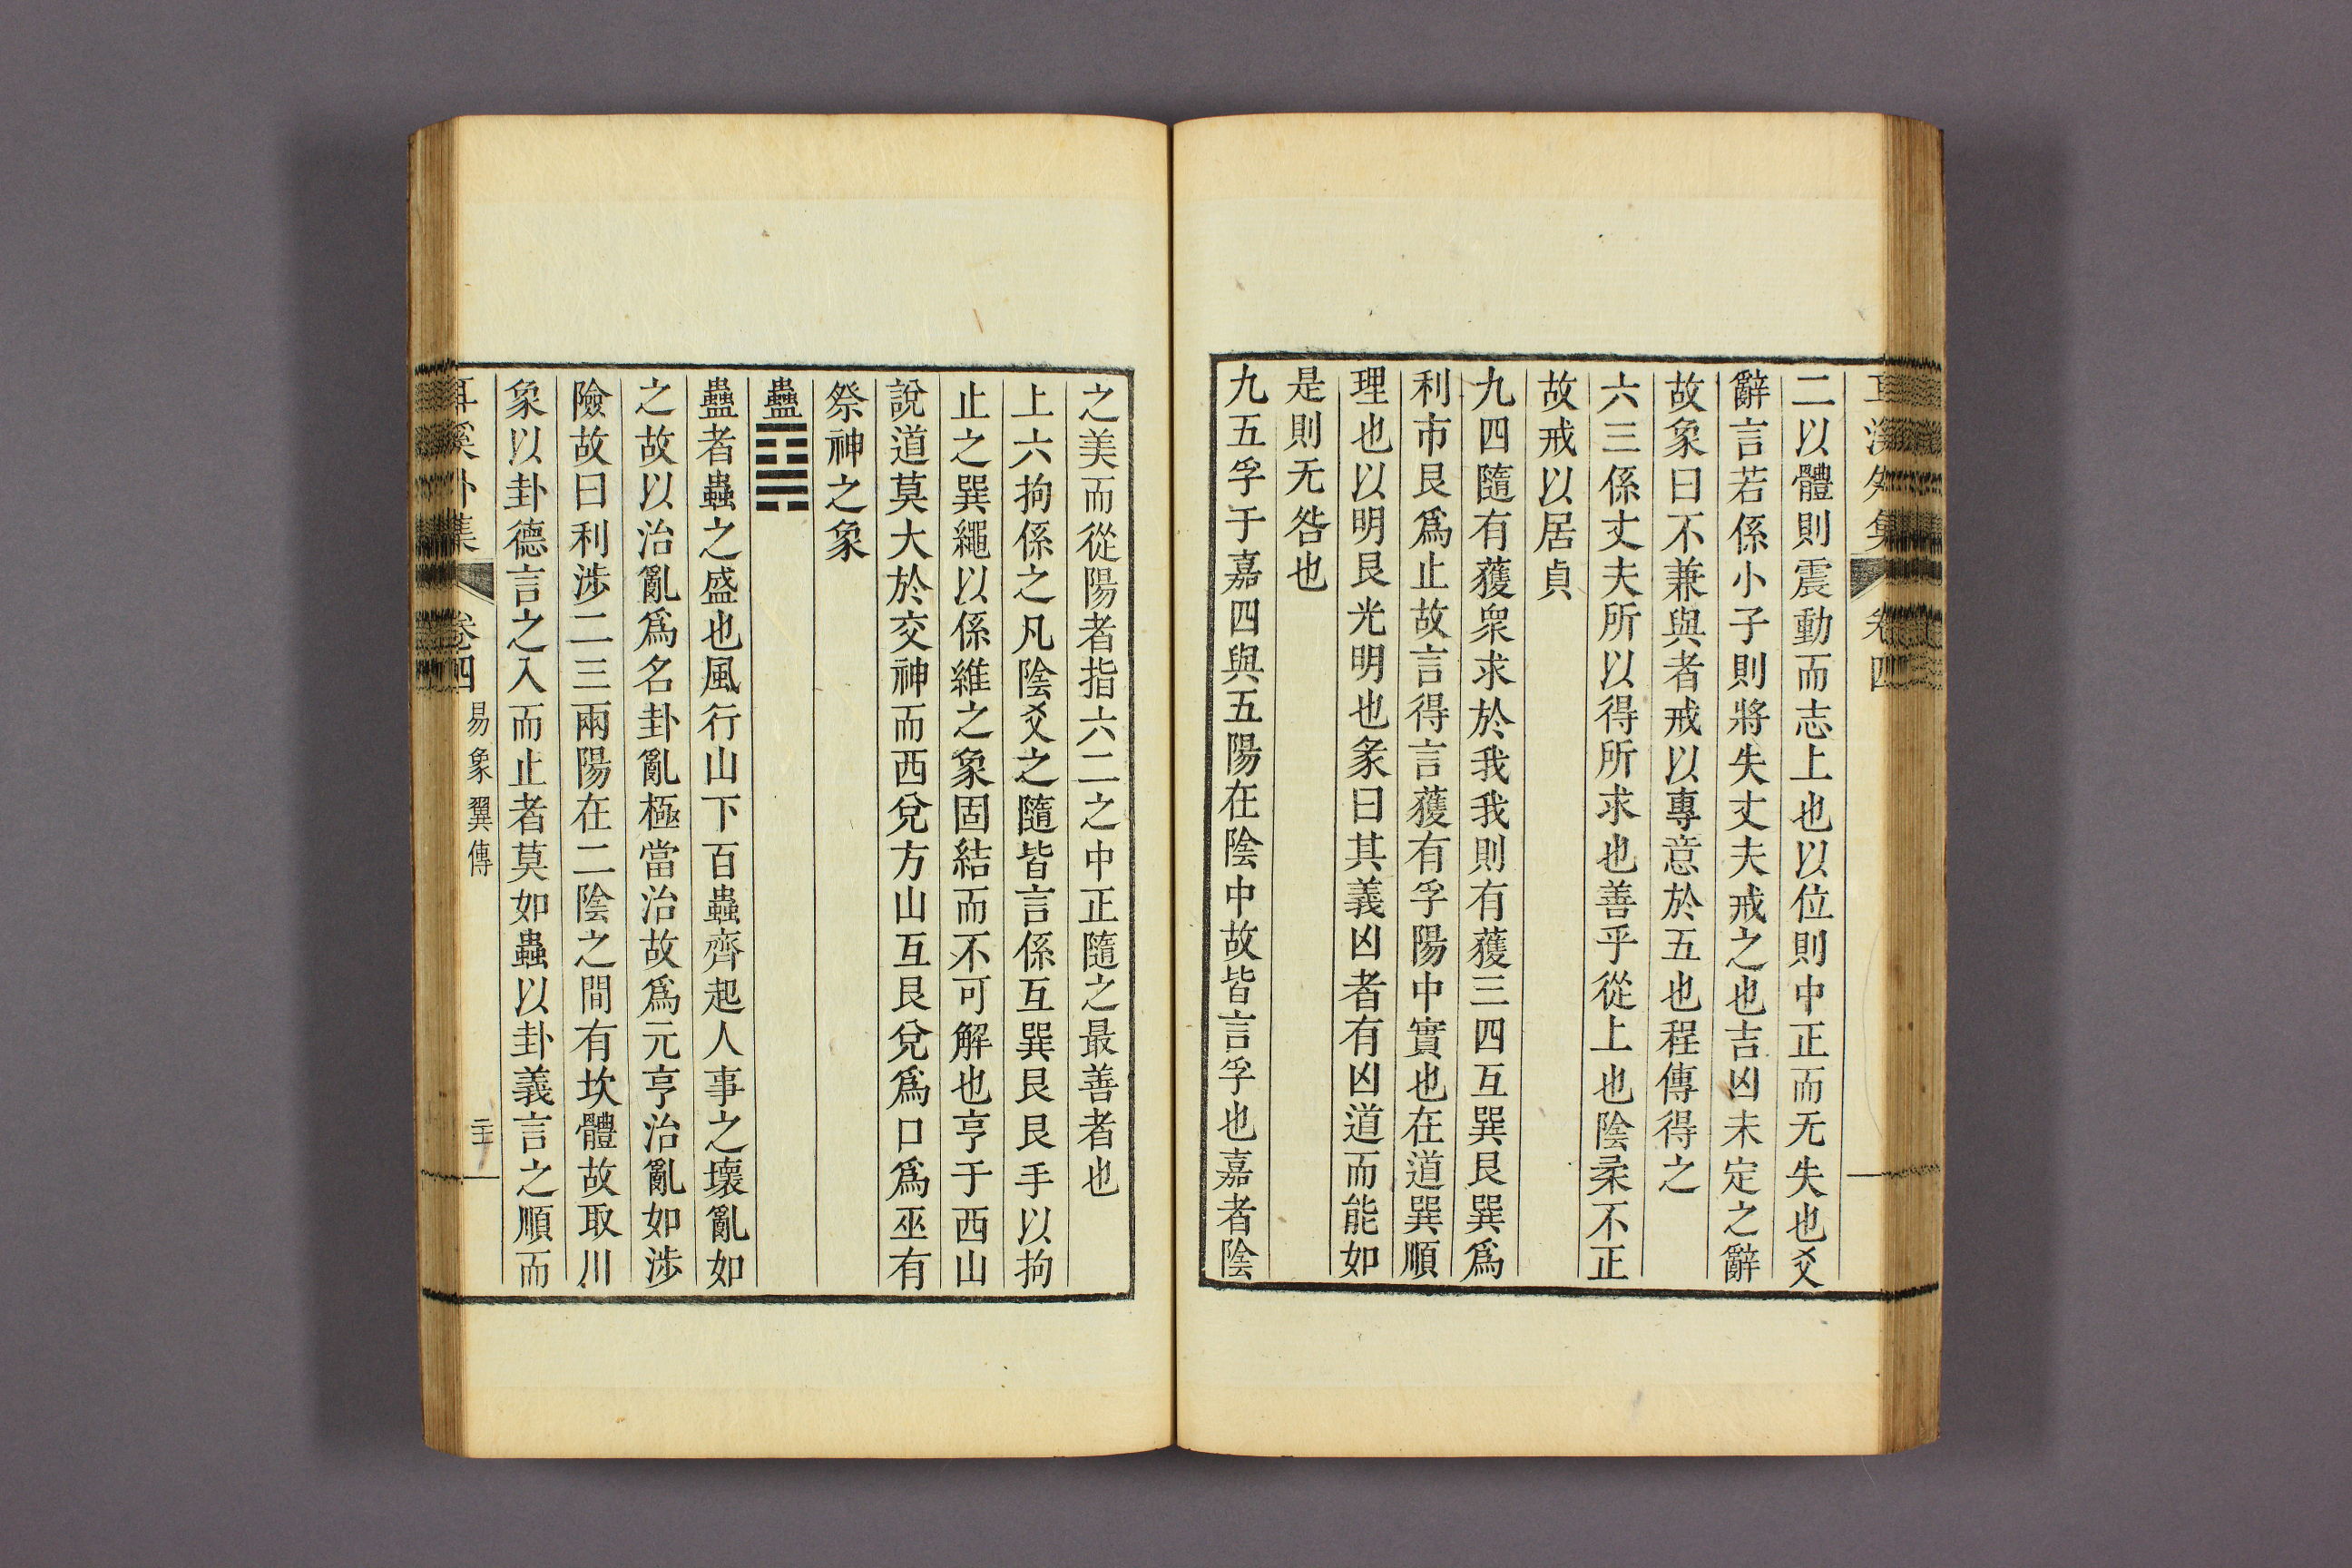 耳溪外集 卷四
二以體則震動而志上也以位則中正而无失也爻
辭言若係小子則將失丈夫戒之也吉凶未定之辭
故象曰不兼與者戒以專意於五也程傳得之
六三係丈夫所以得所求也善乎從上也陰柔不正
故戒以居貞
九四隨有獲衆求於我我則有獲三四互巽艮巽爲
利市艮爲止故言得言獲有孚陽中實也在道巽順
理也以明艮光明也象曰其義凶者有凶道而能如
是則无咎也
九五孚于嘉四與五陽在陰中故皆言孚也嘉者陰
之美而從陽者指六二之中正隨之最善者也
上六拘係之凡陰爻之隨皆言係互巽艮艮手以拘
止之巽繩以係維之象固結而不可解也亨于西山
說道莫大於交神而西兌方山互艮兌爲口爲巫有
祭神之象
蠱䷑
蠱者蟲之盛也風行山下百蟲齊起人事之壞亂如
之故以治亂爲名卦亂極當治故爲元亨治亂如涉
險故曰利涉二三兩陽在二陰之間有坎體故取川
象以卦德言之入而止者莫如蟲以卦義言之順而
耳溪外集 卷四 易象翼傳